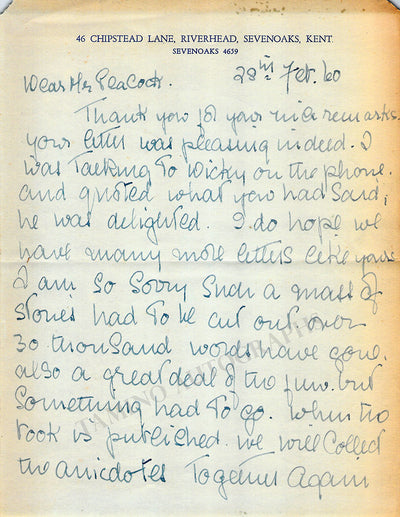 46 CHIPSTEAD LANE, RIVERHEAD, SEVENOAKS, KENT.
SEVENOAKS 4659
Dear Mr Peacock. 28th Feb. 60
Thank you for your nice remarks.
your letter was pleasing indeed. I
was Talking To Wicky on the phone.
and quoted what you had said;
he was delighted. I do hope we
have many more letters like yours
I am so sorry such a mass of
stories had to be cut out over
30 thousand words have gone.
also a great deal of the fun. but
something had To go. When the
book is published. we will Collect
the anicdotes Together Again
TAMINO AUTOGRAPHS